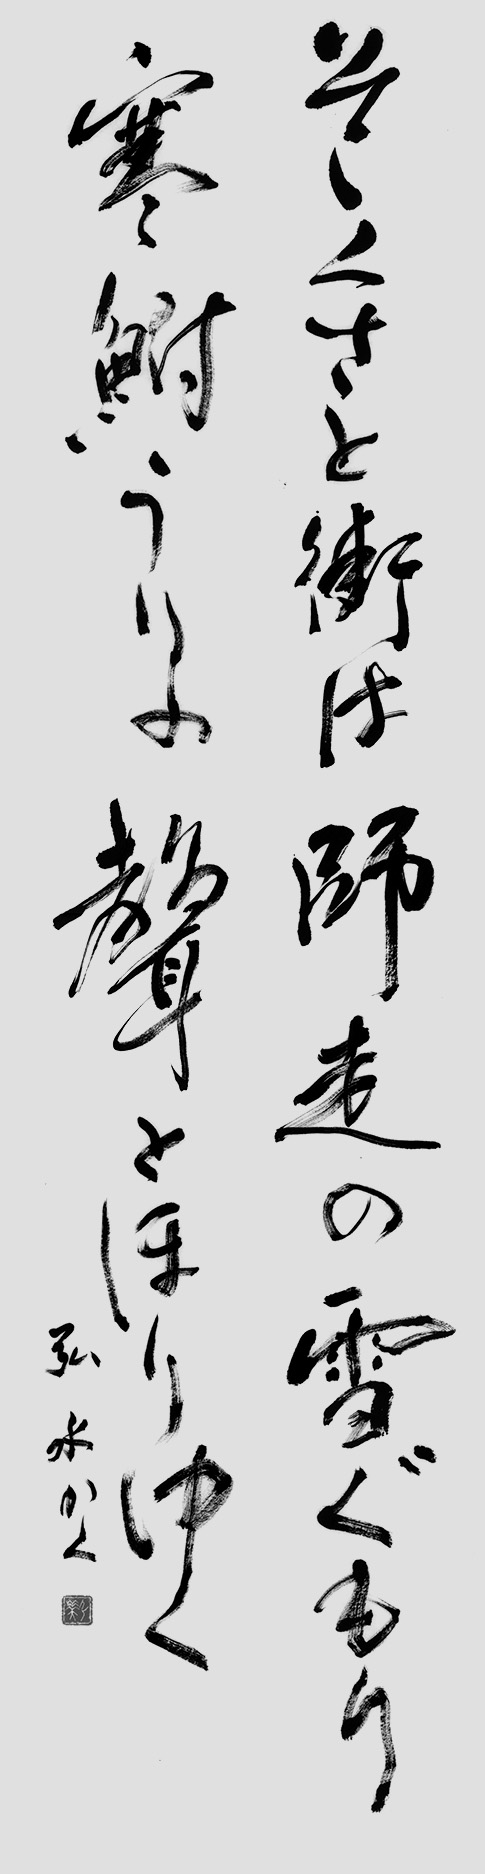 そゝくさと街は師走の雪ぐもり
寒鮒うりの聲とほりゆく
弘水かく